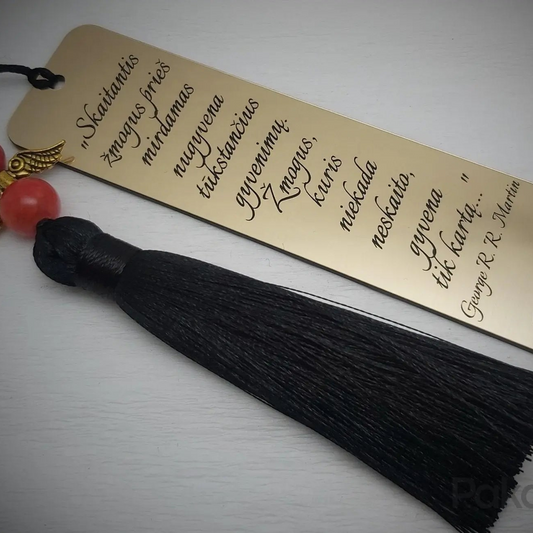 „Skaitantis
žmogus prieš
mirdamas
nugyvena
tūkstančius
gyvenimų.
Žmogus,
kuris
niekada
neskaito,
gyvena
tik kartą..."
George R. R. Martin